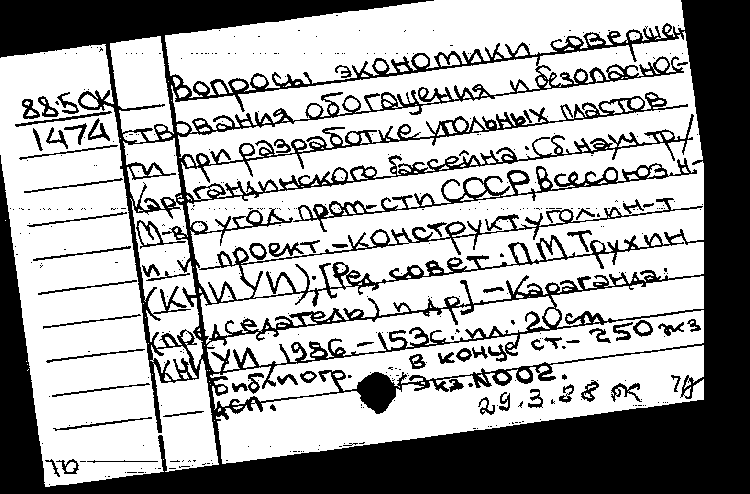 88-5ОК
1474
Вопросы экономики, совершен
ствования обогащения и безопаснос-
ти при разработке угольных пластов
Карагандинского бассейна: Сб. науч. тр./
М-во угол. пром-сти СССР, Всесоюз. н.-
и. и проект.-конструкт. угол. ин-т
(КНИУИ); [Ред. совет.: П.М. Трухин
(председатель) и др]. - Караганда:
КНИУИ, 1986. - 153с.: ил.; 20см.
Библиогр. в конце ст. - 250 экз
ДСП. Экз. N002.
29.3.88 ОК
10